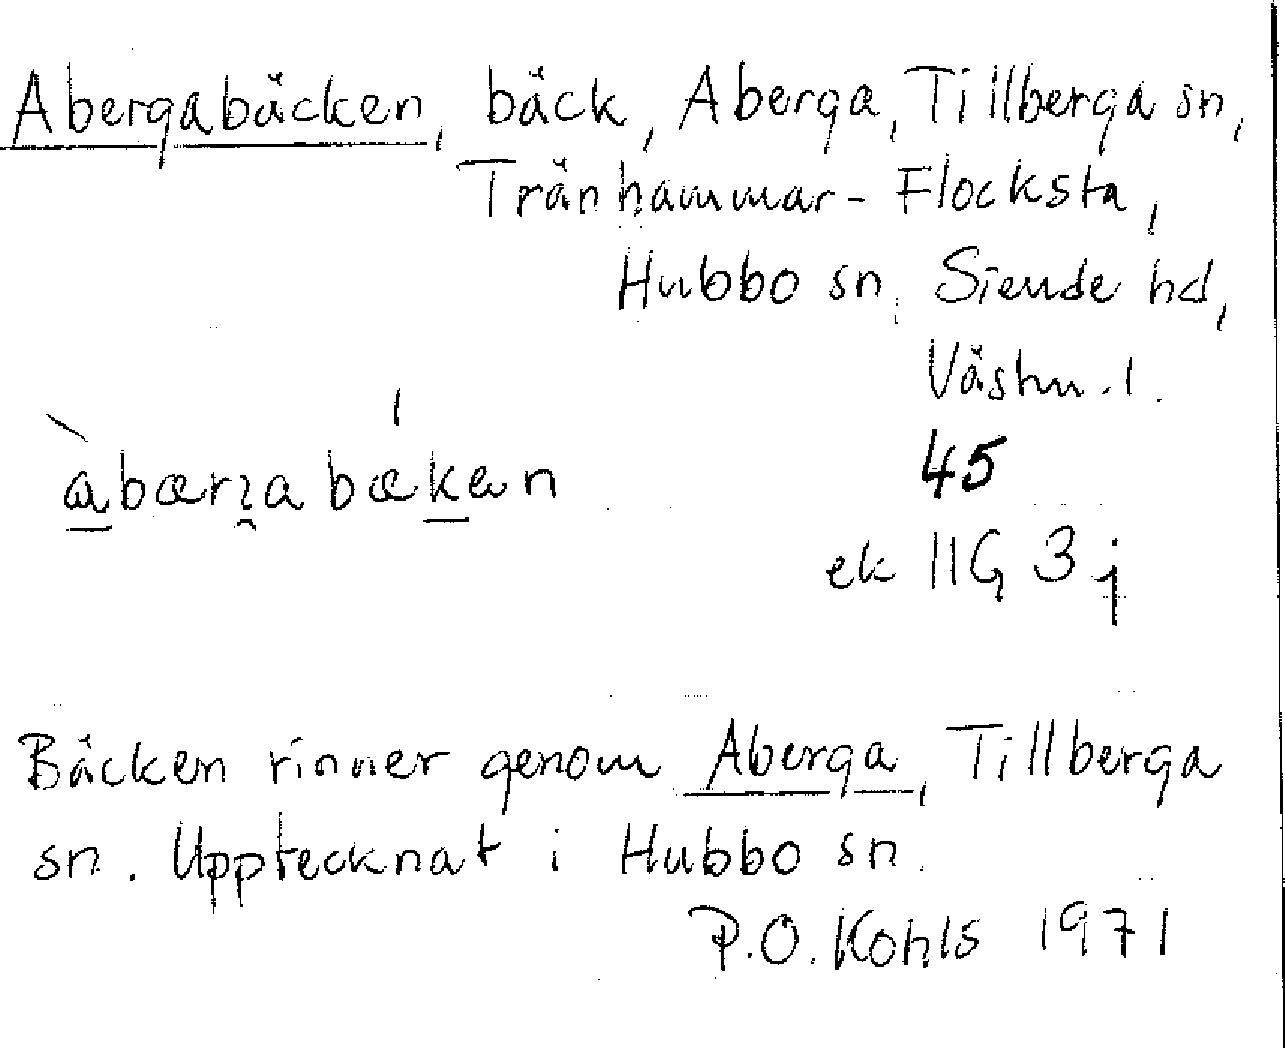 Abergabäcken, bäck, Aberga, Tillberga sn,
Tränhammar - Flocksta,
Hubbo sn, Siende hd,
Västm. l.
45
ek 11G 3 j
Bäcken rinner genom Aberga, Tillberga
sn. Upptecknat i Hubbo sn.
P.O. Kohls 1971